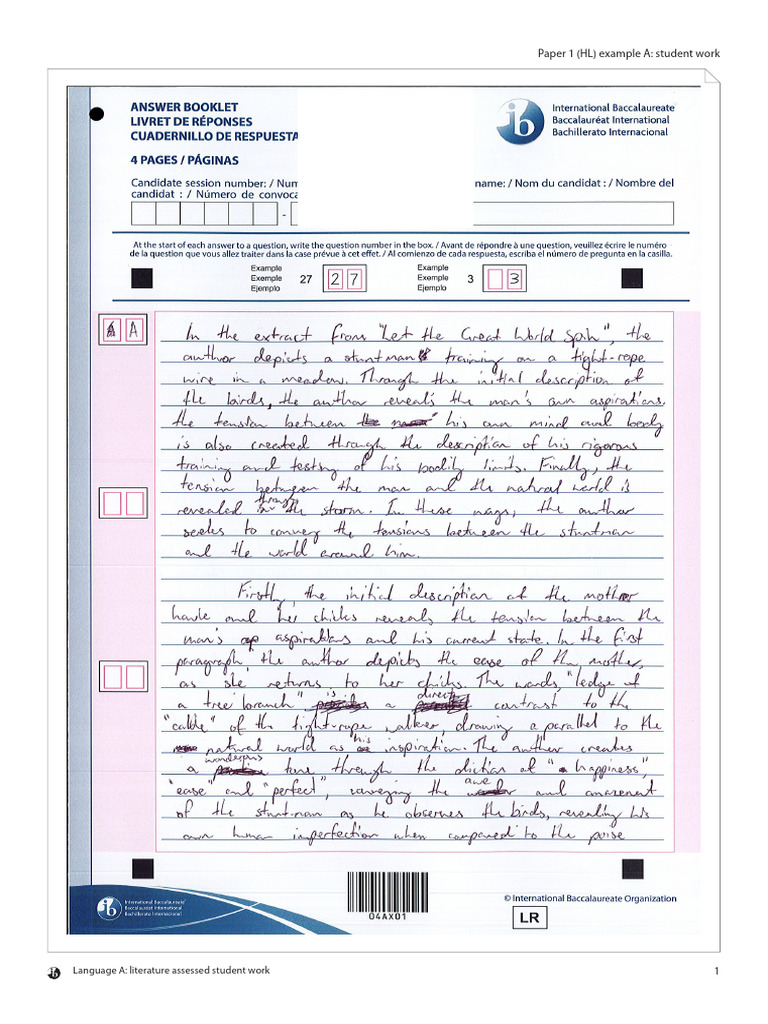 Paper 1 (HL) example A: student work
ANSWER BOOKLET
LIVRET DE RÉPONSES
CUADERNILLO DE RESPUESTA
4 PAGES / PÁGINAS
International Baccalaureate
Baccalauréat International
Bachillerato Internacional
Candidate session number: / Num
candidat : / Número de convoca
name: / Nom du candidat : / Nombre del
-
At the start of each answer to a question, write the question number in the box. / Avant de répondre à une question, veuillez écrire le numéro
de la question que vous allez traiter dans la case prévue à cet effet. / Al comienzo de cada respuesta, escriba el número de pregunta en la casilla.
Example
Exemple
Ejemplo
27
27
Example
Exemple
Ejemplo
3
3
A
In the extract from "Let the Great World Spin", the
author depicts a stuntman training on a tight-rope
wire in a meadow. Through the initial description of
the birds, the author reveals the man's own aspirations.
the tension between his own mind and body
is also created through the description of his rigorous
training and testing of his bodily limits. Finally, the
tension between the man and the natural world is
revealed through the storm. In these ways, the author
seeks to convey the tensions between the stuntman
and the world around him.
Firstly, the initial description of the mother
hawk and her chicks reveals the tension between the
man's aspirations and his current state. In the first
paragraph, the author depicts the ease of the mother,
as she returns to her chicks. The words, "ledge of
a tree branch" is a direct contrast to the
"cable" of the tight-rope walker, drawing a parallel to the
natural world as his inspiration. The author creates
a wonderous tone through the diction of "happiness",
"ease" and "perfect", conveying the awe and amazement
of the stuntman as he observes the birds, revealing his
own human imperfection when compared to the poise
International Baccalaureate
Baccalauréat International
Bachillerato Internacional
04AX01
© International Baccalaureate Organization
LR
Language A: literature assessed student work
1